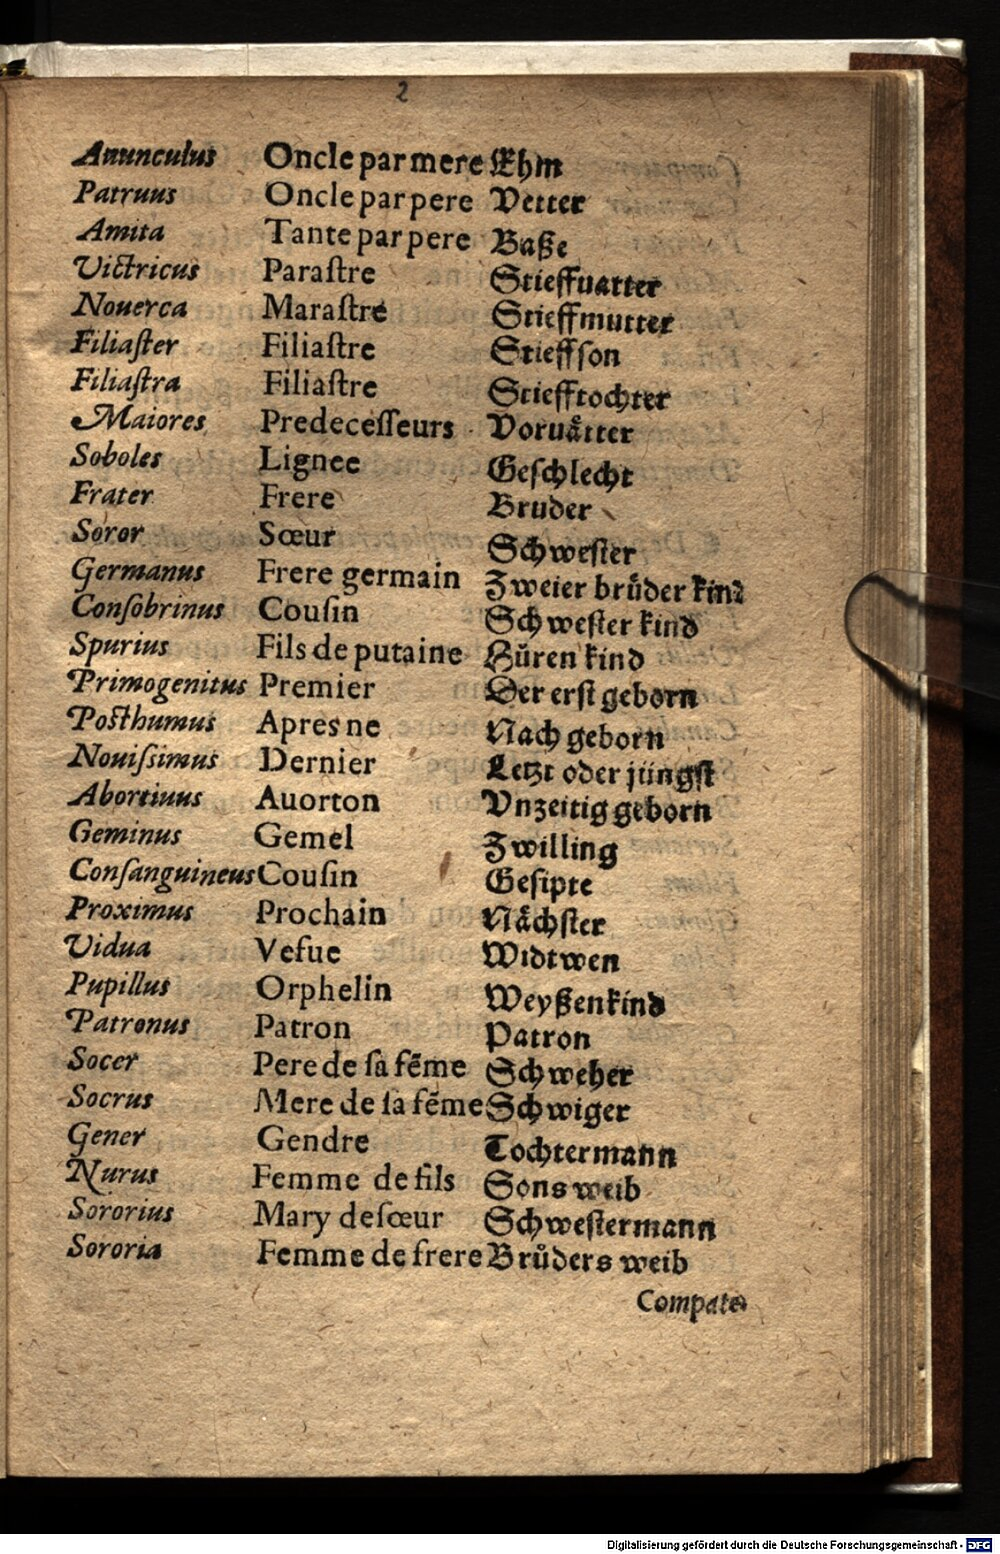 2
Auunculus Oncle par mere Ehm
Patruus Oncle par pere Vetter
Amita Tante par pere Baße
Victricus Paraſtre Stieffuatter
Nouerca Maraſtre Stieffmutter
Filiaſter Filiaſtre Stieffſon
Filiaſtra Filiaſtre Stiefftochter
Maiores Predeceſſeurs Voruåtter
Soboles Lignee Geſchlecht
Frater Frere Bruder
Soror Sœur Schweſter
Germanus Frere germain Zweier brůder kind
Conſobrinus Couſin Schweſter kind
Spurius Fils de putaine Hůren kind
Primogenitus Premier Der erſt geborn
Poſthumus Apres ne Nach geborn
Nouiſsimus Dernier Letzt oder jüngſt
Abortiuus Auorton Vnzeitig geborn
Geminus Gemel Zwilling
Conſanguineus Couſin Geſipte
Proximus Prochain Nåchſter
Vidua Vefue Widtwen
Pupillus Orphelin Weyßenkind
Patronus Patron Patron
Socer Pere de ſa fẽme Schweher
Socrus Mere de ſa fẽme Schwiger
Gener Gendre Tochtermann
Nurus Femme de fils Sons weib
Sororius Mary de ſœur Schweſtermann
Sororia Femme de frere Brůders weib
Compater
Digitalisierung gefördert durch die Deutsche Forschungsgemeinschaft - DFG